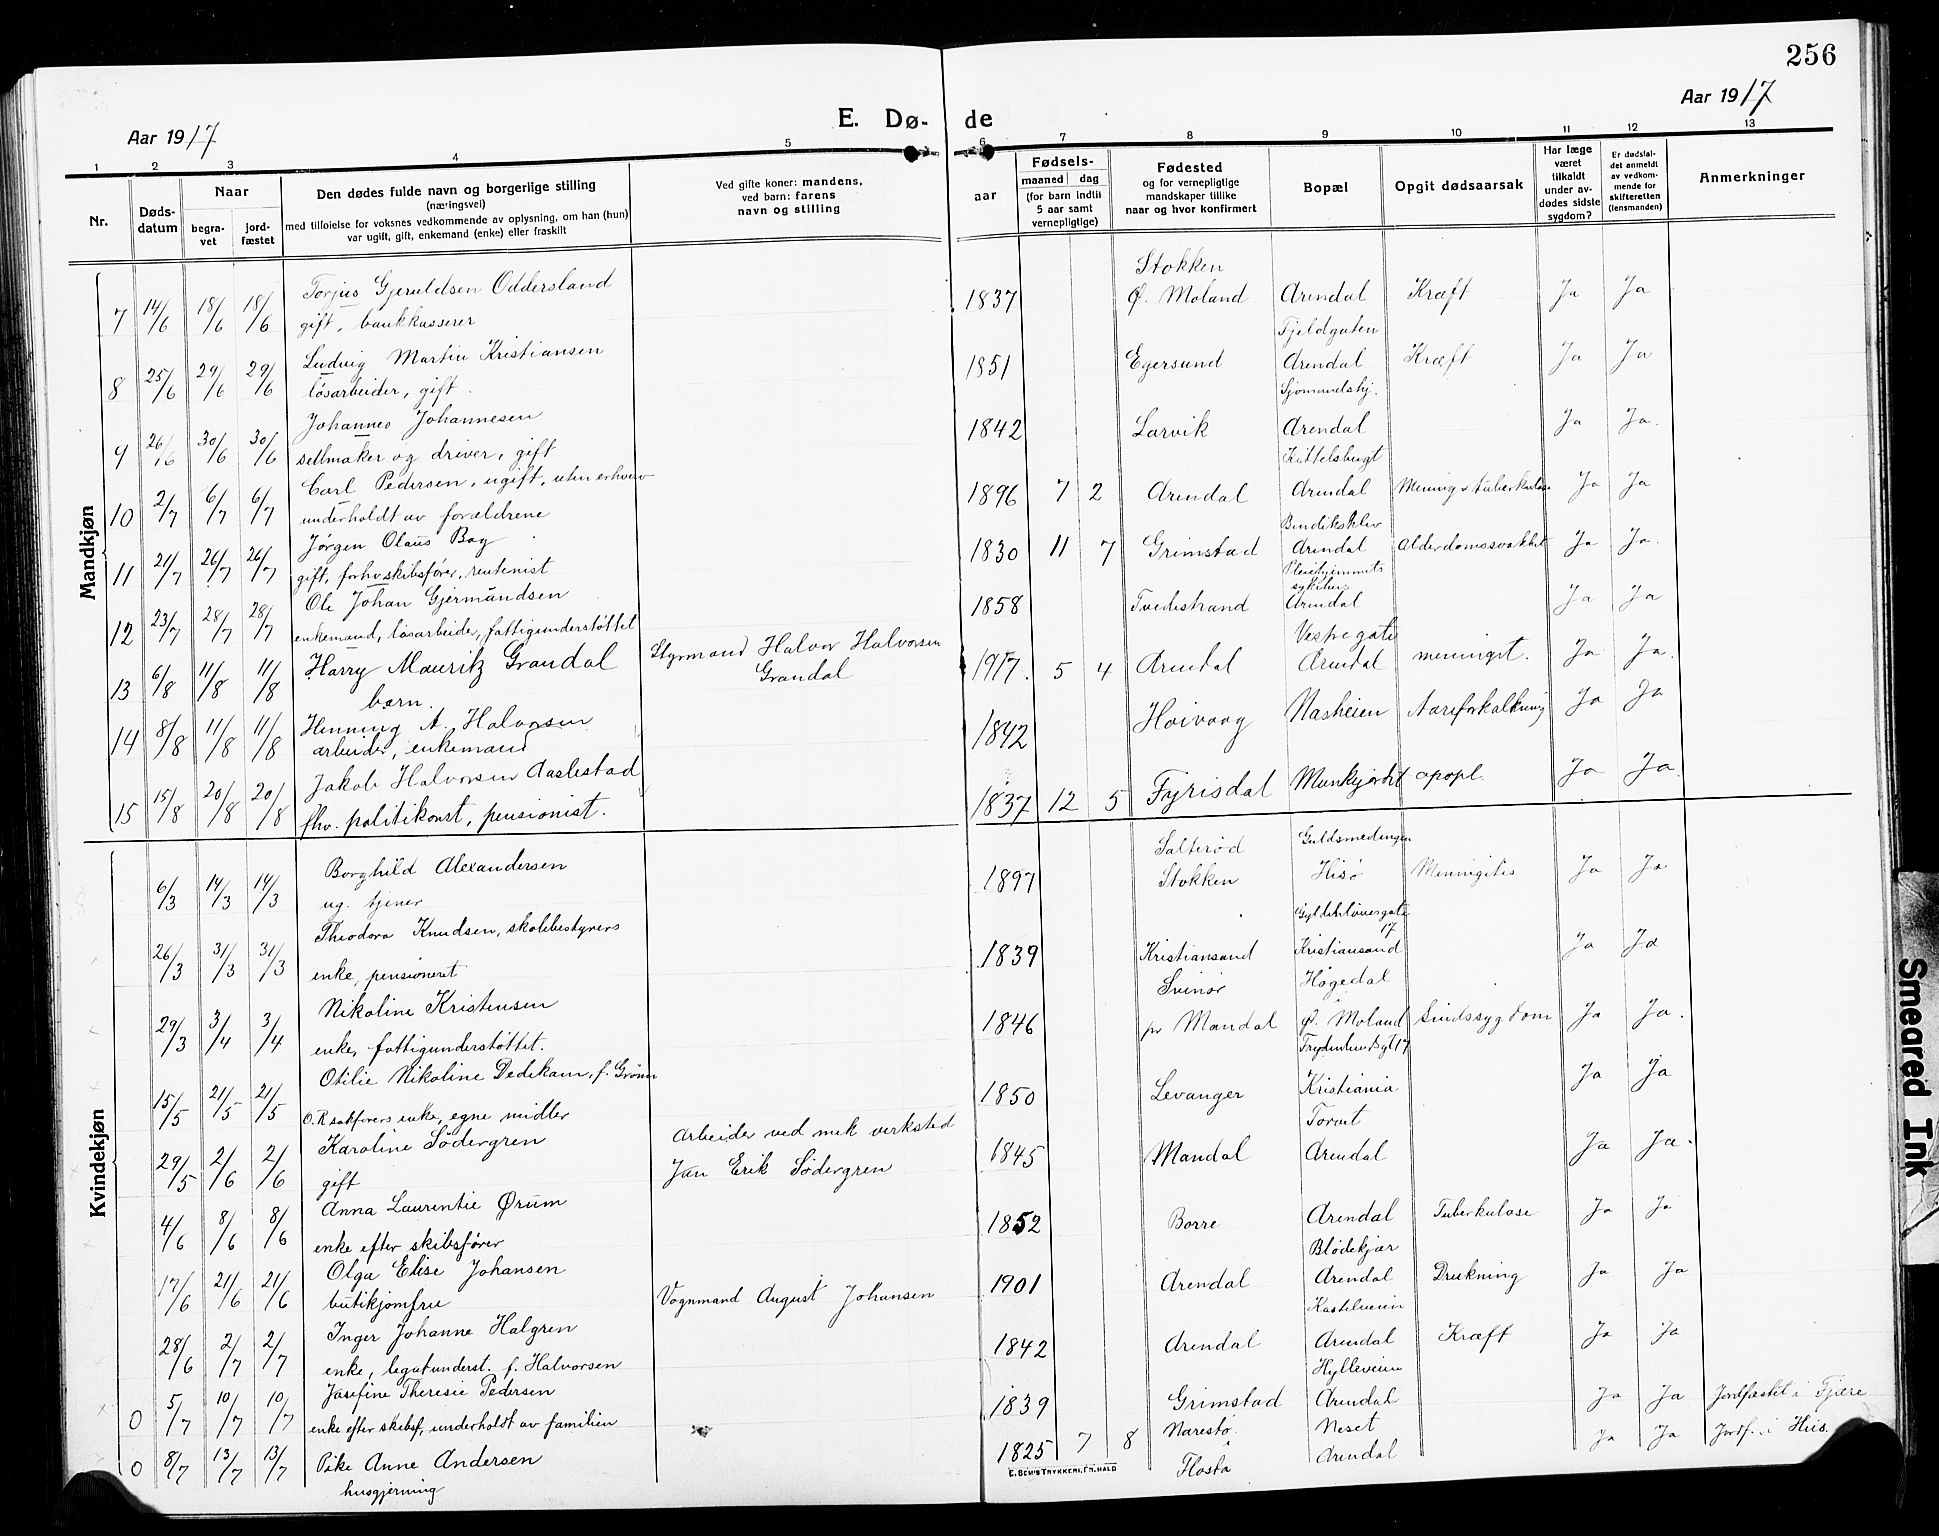 256
Aar 1917
E. Dø- de
Aar 1917
1 2 3 4 5 6 7 8 9 10 11 12 13
Nr.
Døds-
datum
Naar
begra-
vet
jord-
fæstet
Den dødes fulde navn og borgerlige stilling
(næringsvei)
med tilføielse for voksnes vedkommende av oplysning, om han (hun)
var ugift, gift, enkemand (enke) eller fraskilt
Ved gifte koner: mandens,
ved barn: farens
navn og stilling
Fødsels-
aar
maaned dag
(for barn indtil
5 aar samt
vernepligtige)
Fødested
og for vernepligtige
mandskaper tillike
naar og hvor konfirmert
Bopæl
Opgit dødsaarsak
Har læge
været
tilkaldt
under av-
dødes sidste
sygdom?
Er dødsfal-
det anmeldt
av vedkom-
mende for
skifteretten
(lensmanden)
Anmerkninger
Mandkjøn
Torjus Gjeruldsen Oddersland Stokken
7 14/6 18/6 18/6 gift, bankkasserer 1837 Ø. Moland Arendal Kræft Ja Ja
Ludvig Martin Kristiansen Fjeldgaten
8 25/6 29/6 29/6 løsarbeider, gift. 1851 Egersund Arendal Kræft Ja Ja
Johannes Johannesen Sjømandshj.
9 26/6 30/6 30/6 seilmaker og driver, gift 1842 Larvik Arendal Ja Ja.
Carl Pedersen, ugift, uten erhverv Kittelsbugt
10 2/7 6/7 6/7 underholdt av forældrene 1896 7 2 Arendal Arendal Mening. tuberkulose Ja Ja
Jørgen Olaus Bag Bendiksklev
11 21/7 26/7 26/7 gift, forhv skibsfører, rentenist 1830 11 7 Grimstad Arendal Alderdomssvakhet Ja Ja.
Ole Johan Gjermundsen Pleiehjemmets
12 23/7 28/7 28/7 enkemand, løsarbeider, fattigunderstøttet 1858 Tvedestrand Arendal Ja Ja
Harry Mauritz Grandal Styrmand Halvor Halvorsen Vestregate
13 6/8 11/8 11/8 barn. Grandal 1917. 5 4 Arendal Arendal meningit. Ja Ja.
Henning A. Halvorsen
14 8/8 11/8 11/8 arbeider, enkemand 1842 Høivaag Nasheien Aareforkalkning Ja Ja
Jakob Halvorsen Aasbestad
15 15/8 20/8 20/8 fhv. politikonst, pensionist. 1837 12 5 Fyrisdal Munkejordet apopl. Ja Ja.
Kvindekjøn
Borghild Alexandersen Salterød Guldsmedengen
6/3 14/3 14/3 ug. tjener 1897 Stokken Hisø Meningitis Ja Ja
Theodora Knudsen, skolebestyrers Gyldenløvesgate 17
26/3 31/3 31/3 enke, pensioneret 1839 Kristiansand Kristiansand Ja Ja
Nikoline Kristensen Svinør Høgedal
29/3 3/4 3/4 enke, fattigunderstøttet. 1846 pr Mandal Ø. Moland Sindssygdom Ja Ja.
Otilie Nikoline Dedekam, f. Grønn
15/5 21/5 21/5 O.R sakførers enke, egne midler 1850 Levanger Kristiania Ja Ja
Karoline Södergren Arbeider ved mek verksted Torvet
29/5 2/6 2/6 gift Jan Erik Södergren 1845 Mandal Arendal Ja Ja.
Anna Laurentie Ørum
4/6 8/6 8/6 enke efter skibsfører 1852 Borre Arendal Tuberkulose Ja Ja
Olga Elise Johansen Blødekjær
17/6 21/6 21/6 butikjomfru Vognmand August Johansen 1901 Arendal Arendal Drukning Ja Ja
Inger Johanne Halgren Kastelveien
28/6 2/7 2/7 enke, legatunderst. f. Halvorsen 1842 Arendal Arendal Kræft Ja Ja
Josefine Theresie Pedersen Hylleveien
0 5/7 10/7 10/7 enke efter skibsf, underholdt av familien 1839 Grimstad Arendal Ja Ja Jordfæstet i Fjære
0 8/7 13/7 13/7 Pike Anne Andersen 1825 7 8 Narestø. Neset Ja Ja Jordf. i Hiis.
husgjerning Flosta Arendal
E. SEM'S TRYKKERI, FR. HALD
Smeared Ink